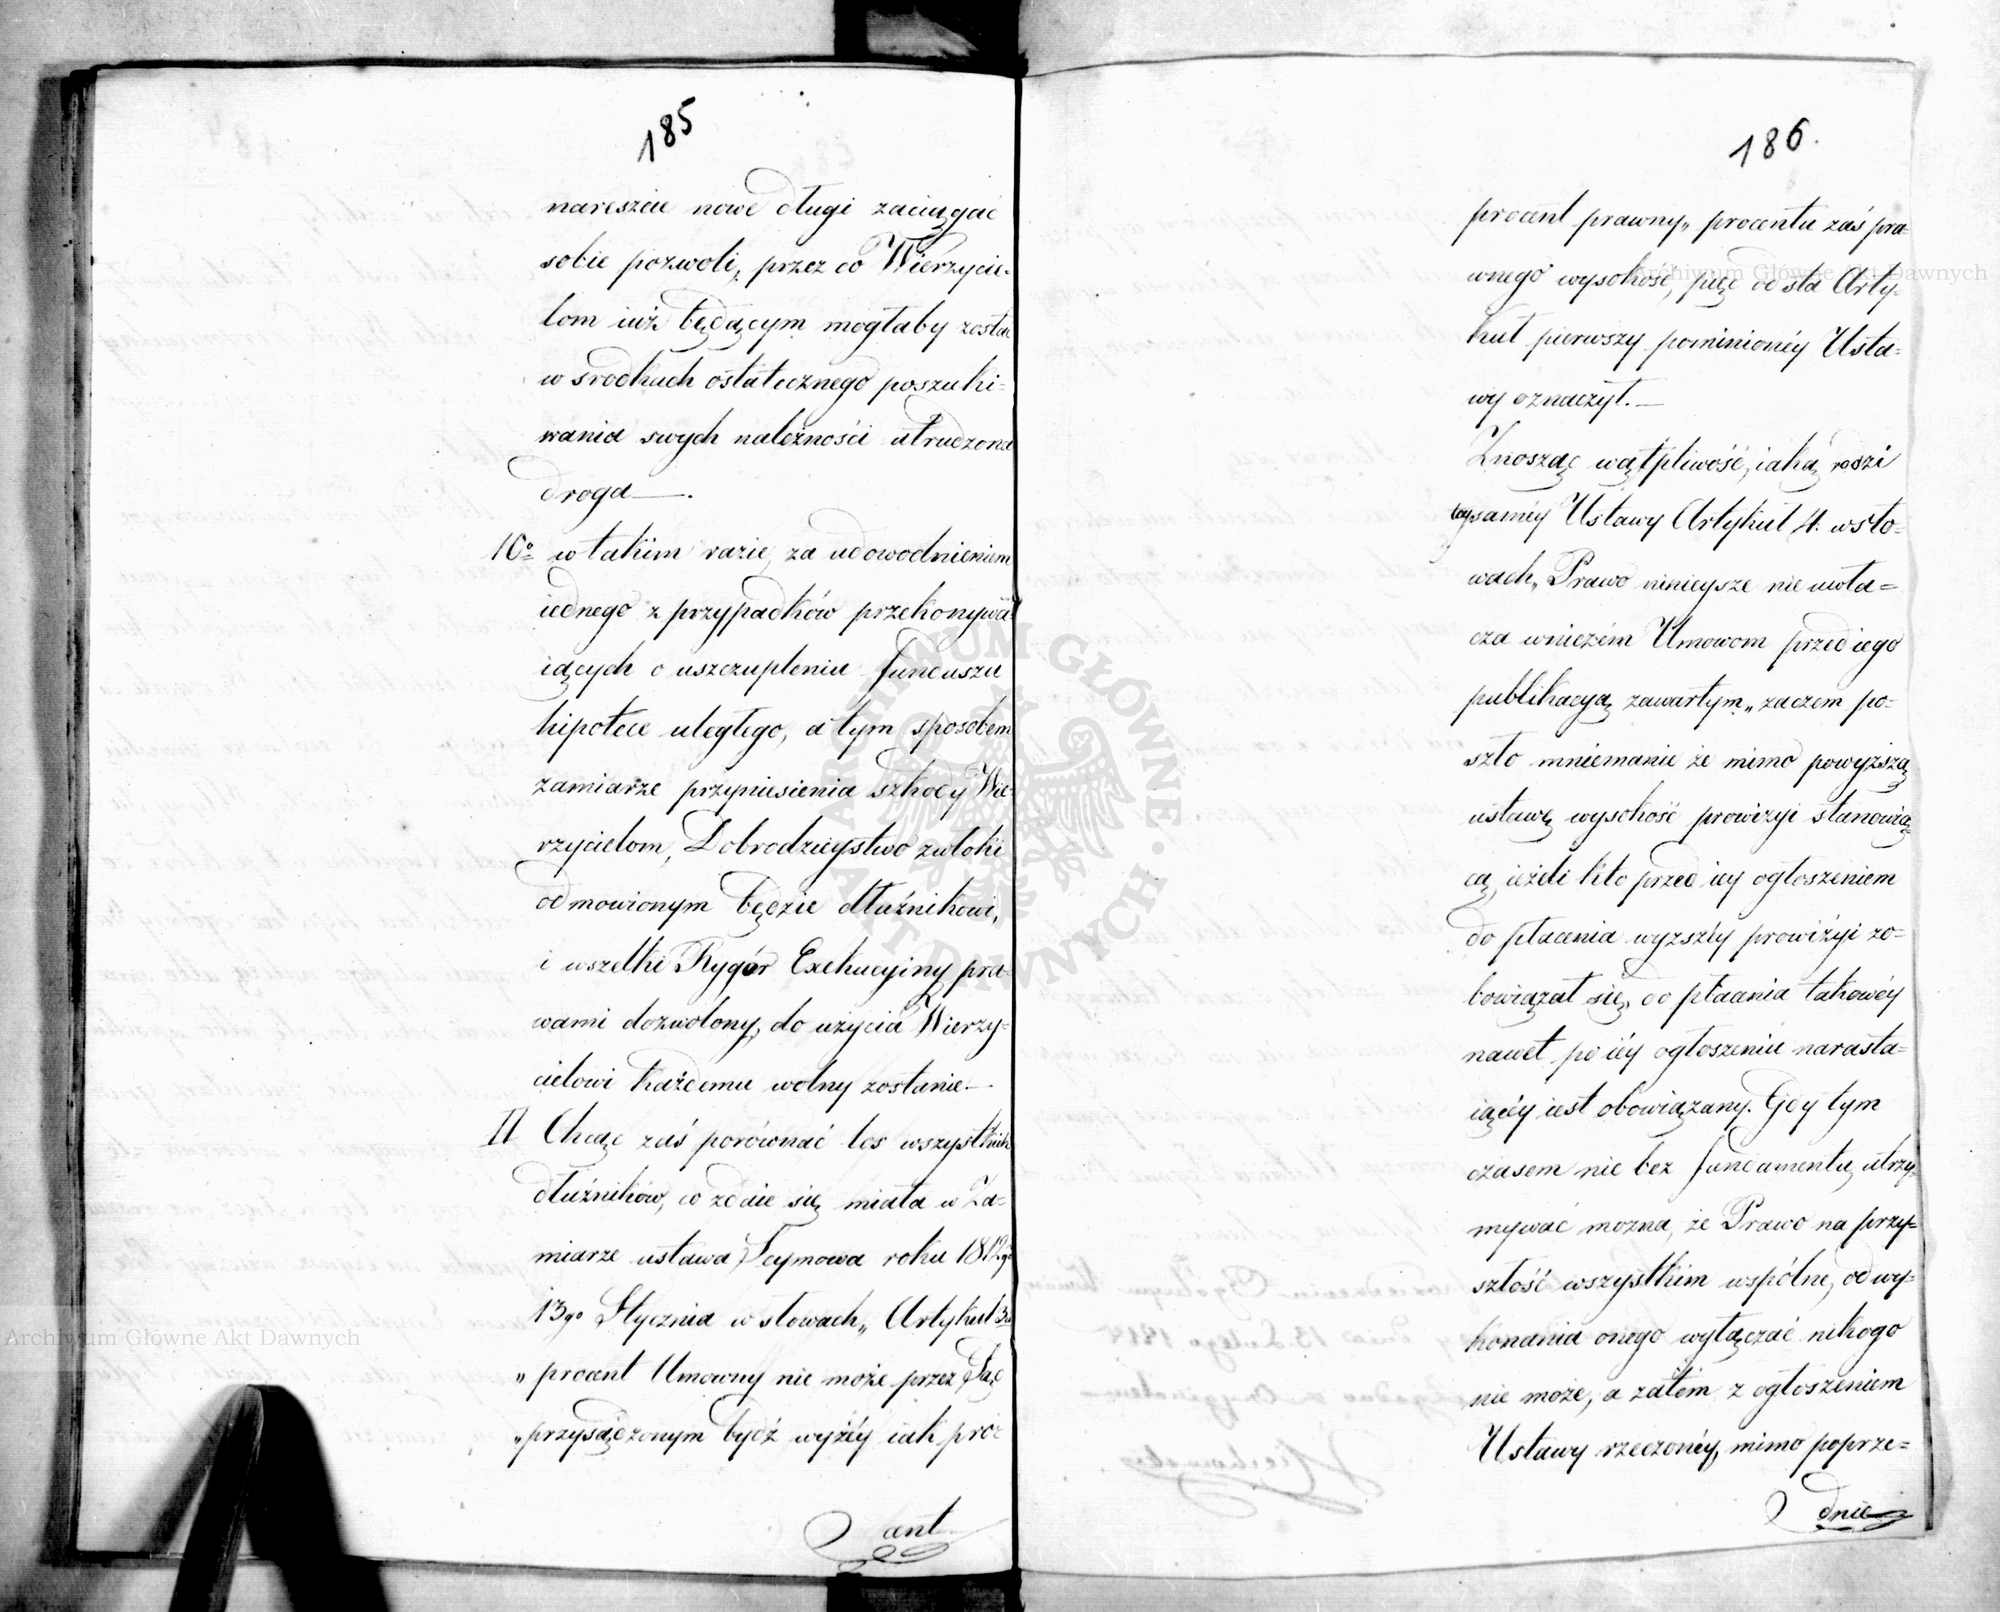 185
nareszcie nowe długi zaciągać
sobie pozwoli, przez co Wierzycie-
lom iuż będącym mogłaby zostać
w srodkach ostatecznego poszuki-
wania swych należnośći utrudzona
droga —.
10o w takim razie, za udowodnieniem
iednego z przypadków przekonywa-
iących o uszczupleniu funduszu
hipotece uległego, a tym sposobem
zamiarze przyniesienia szkody Wie-
rzycielom, Dobrodzieystwo zwłoki
odmowionym będzie dłużnikowi,
i wszelki Rygór Exekucyiny pra-
wami dozwolony, do użycia Wierzy-
cielowi każdemu wolny zostanie.—
11 Chcąc zaś porównać los wszystkich
dłużników, co zdaie się miała w Za-
miarze ustawa Seymowa roku 1812go
13go Stycznia w słowach „ Artykuł 3
„ procent Umowny nie może przez Sąd
„ przysądzonym bydź wyżéy iak pro-
cent
186.
procent prawny „ procentu zaś pra-
wnego wysokość, pięć od sta Arty-
kuł pierwszy pominionéy Usta-
wy oznaczył.—
Znosząc wątpliwość, iaką rodzi
teysaméy Ustawy Artykuł 4. w sło-
wach „ Prawo ninieysze nie uwła-
cza wniczém Umowom przed iego
publikacyą zawartym „ zaczem po-
szło mniemanie że mimo powyższą
ustawę wysokość prowizyi stanowią-
cą, ieżeli kto przed iey ogłoszeniem
do płacenia wyzszéy prowizyi zo-
bowiązał się, do płacenia takowéy
nawet po iéy ogłoszeniu narasta-
iącéy iest obowiązany. Gdy tym
czasem nie bez fundamentu utrzy-
mywać mozna, że Prawo na przy-
szłość wszystkim wspólne, od wy-
konania onego wyłączać nikogo
nie może, a zatém z ogłoszeniem
Ustawy rzeczonéy, mimo poprze-
dnie
Archiwum Główne Akt Dawnych
Archiwum Główne Akt Dawnych
ARCHIWUM GŁÓWNE AKT DAWNYCH